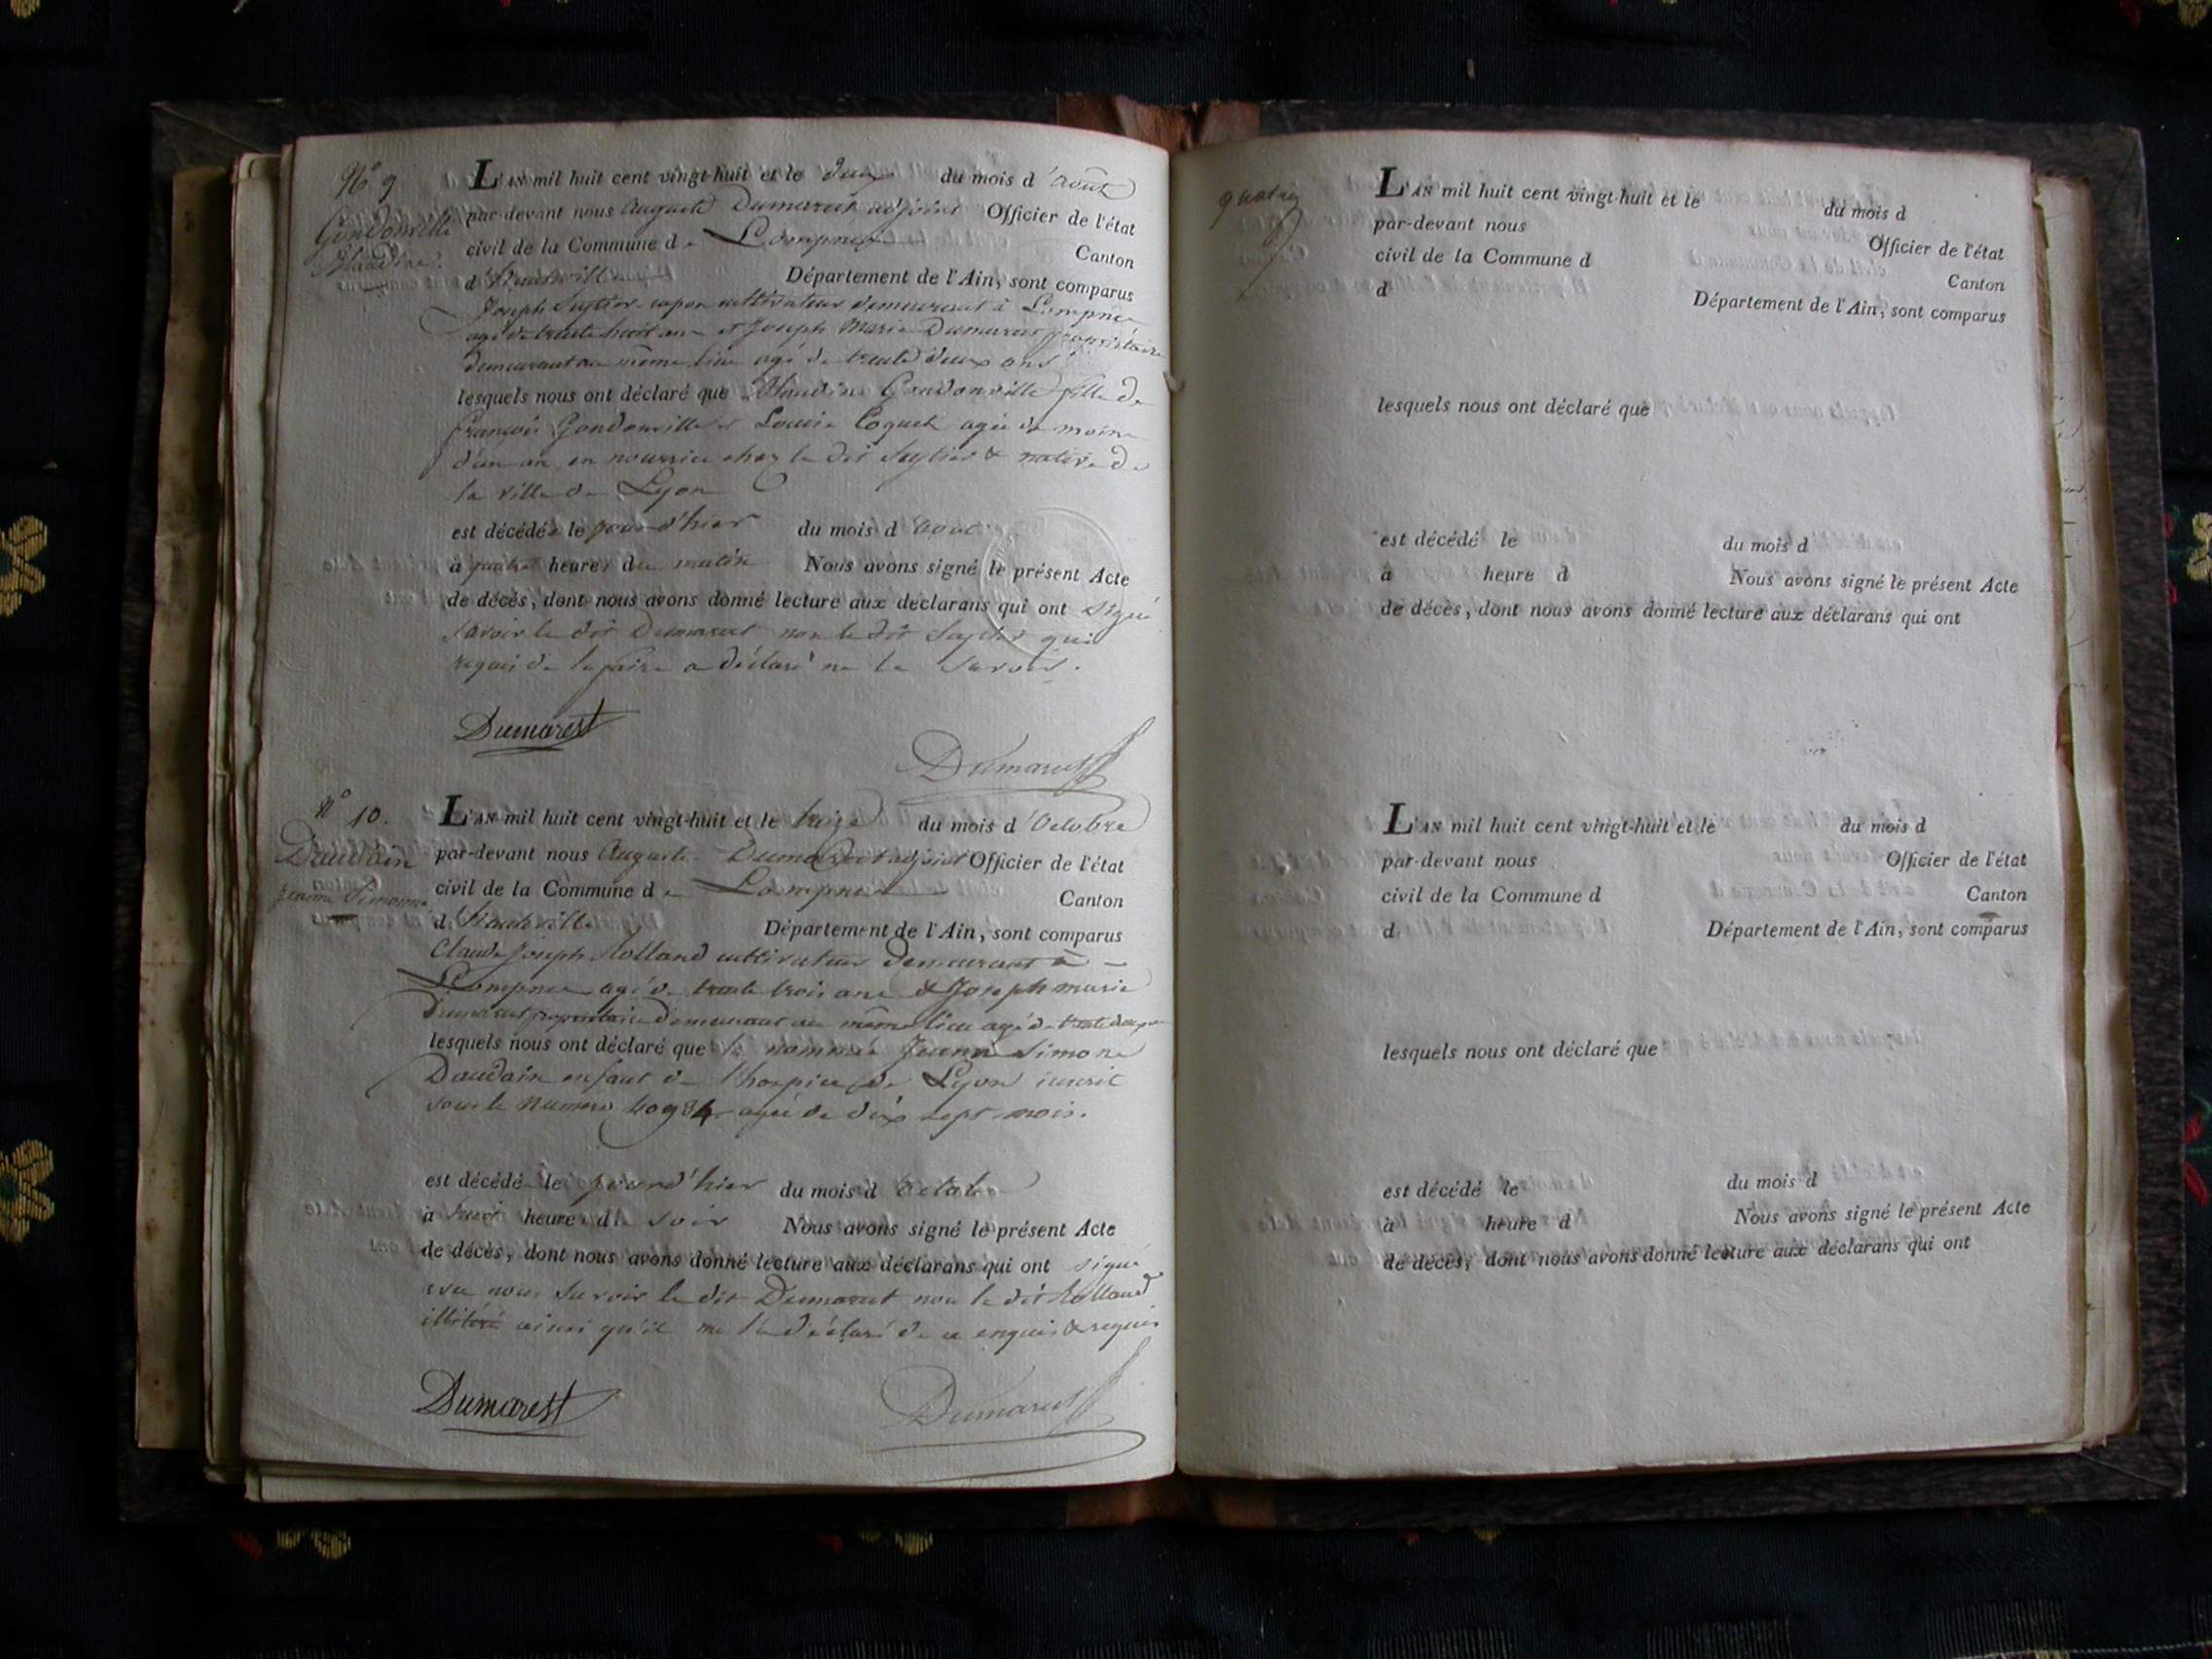 N° 9
Gondonville
Claudine.
L'AN mil huit cent vingt-huit et le deux du mois d'Août
par-devant nous Auguste Dumarest adjoint Officier de l'état
civil de la Commune de Lompnes Canton
d'hauteville Département de l'Ain, sont comparus
Joseph cultivateur demeurant à Lompnes
agé de trente huit ans et Joseph Marie Dumarest propriétaire
demeurant au même lieu agé de trente deux ans
lesquels nous ont déclaré que Claudine Gondonville fille de
françois Gondonville et Louise Coquet agée de moins
d'un an, en nourrice chez le dit & native de
la ville de Lyon
est décédée le jour d'hier du mois d'aout
à quatre heures du matin Nous avons signé le présent Acte
de décès, dont nous avons donné lecture aux déclarans qui ont signé
savoir le dit Dumarest non le dit qui
requis de le faire a déclaré ne le savoir.
Dumarest
Dumarest
n° 10.
Daudain
Jeanne Simone
L'AN mil huit cent vingt-huit et le treize du mois d'Octobre
par-devant nous Auguste Dumarest adjoint Officier de l'état
civil de la Commune de Lompnes Canton
d'hauteville Département de l'Ain, sont comparus
Claude Joseph Rolland cultivateur demeurant à
Lompnes agé de trente trois ans & Joseph marie
Dumarest propriétaire demeurant au même lieu agé de trente deux
lesquels nous ont déclaré que la nommée Jeanne Simone
Daudain enfant de l'hospice de Lyon inscrit
sous le numéro agée de dix sept mois.
est décédée le jour d'hier du mois d'octobre
à huit heures du soir Nous avons signé le présent Acte
de décès, dont nous avons donné lecture aux déclarans qui ont signé
avec nous savoir le dit Dumarest non le dit Rolland
illitéré ainsi qu'il me l'a déclaré de ce enquis & requis
Dumarest
Dumarest
quatre
L'AN mil huit cent vingt-huit et le du mois d
par-devant nous Officier de l'état
civil de la Commune d Canton
d Département de l'Ain, sont comparus
lesquels nous ont déclaré que
est décédé le du mois d
à heure d Nous avons signé le présent Acte
de décès, dont nous avons donné lecture aux déclarans qui ont
L'AN mil huit cent vingt-huit et le du mois d
par-devant nous Officier de l'état
civil de la Commune d Canton
d Département de l'Ain, sont comparus
lesquels nous ont déclaré que
est décédé le du mois d
à heure d Nous avons signé le présent Acte
de décès, dont nous avons donné lecture aux déclarans qui ont